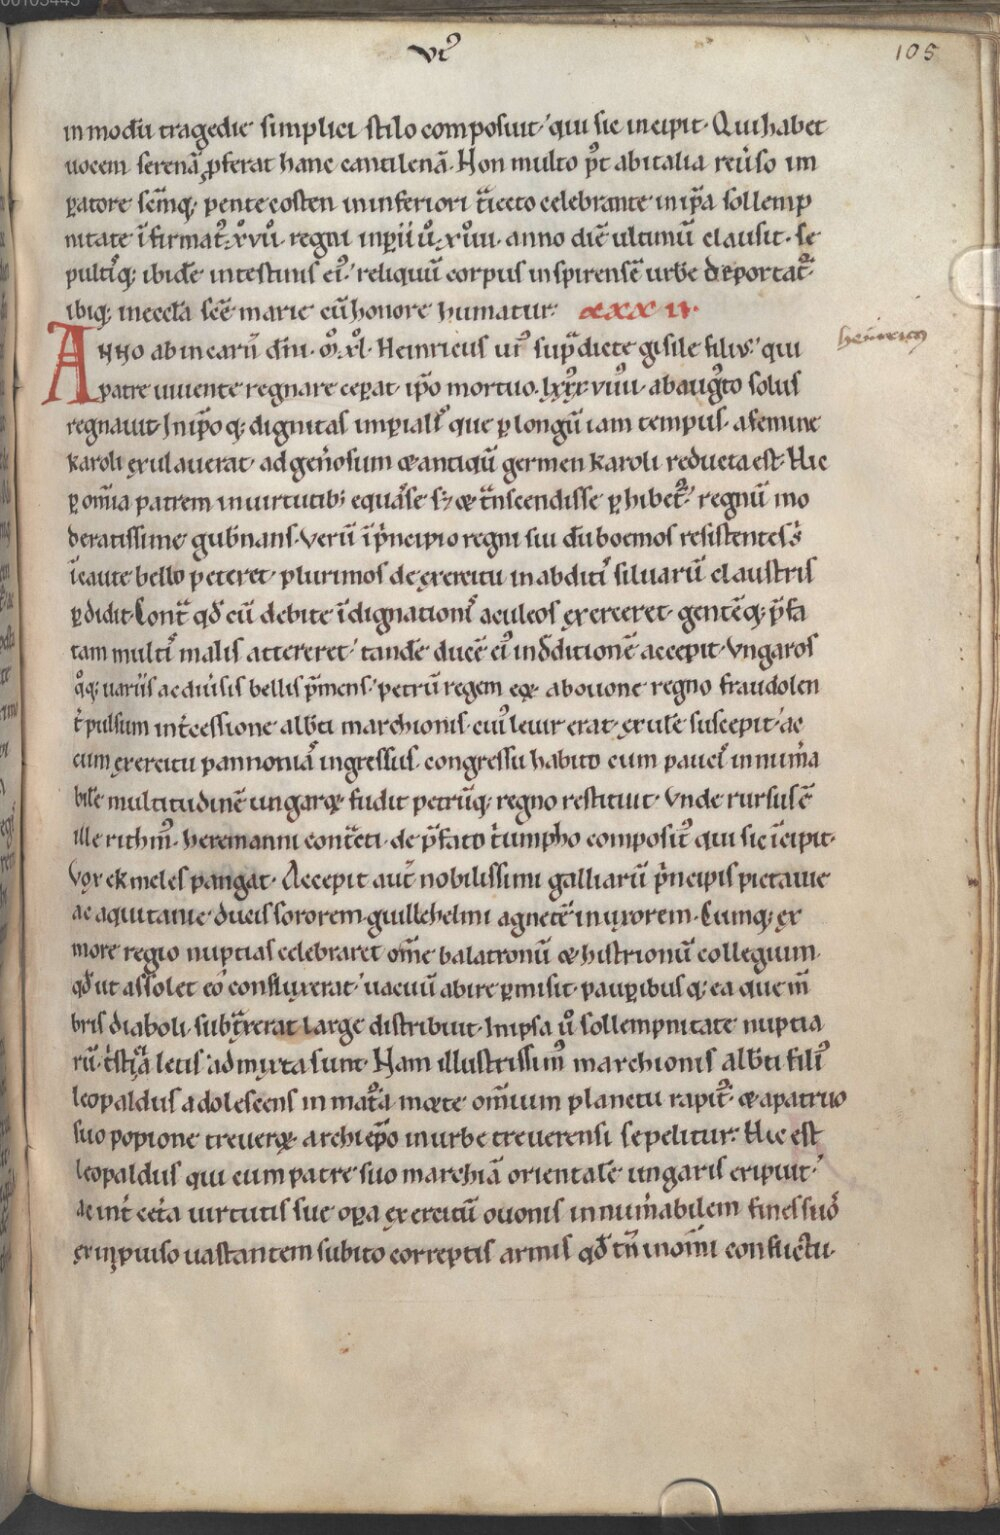 VI᷒
105
in modū tragedie simplici stilo composuit,' qui sic incipit. Qui habet
uocem serenā, ꝓferat hanc cantilenā. Non multo p̾t ab italia reu̾so im
ꝑatore sēmq; pentecosten in inferiori t̾iecto celebrante in ip̄a sollemp
nitate īfirmat᷒ xvu̾. regni inp̄ii u̾. xiiii. anno diē ultimū clausit. se
pultisq; ibidē intestinis ei᷒,' reliquū corpus in spirensē urbē deportat᷑.
ibiq; in eccl̄a sc̄e marie cū honore humatur. XXXII.
Anno ab incarn̄ dn̄i. m̊. xl̊. Heinricus iii᷒ sup̄dicte gisile filius,' qui
heinricus
patre uiuente regnare ceꝑat. ip̄o mortuo. lxxxviiii. ab augusto solus
regnauit. In ip̄o q; dignitas imperialis que ꝑ longū iam tempus. a semine
karoli exulauerat. ad gen̾osum & antiquū germen karoli reducta est. Hic
ꝑ om̄ia patrem in uirtutib; equasse s; & t̄nscendisse ꝑhibet᷑,' regnū mo
deratissime gub̄nans. Verū ī p̾ncipio regni sui dū boemos resistentes s̾
īcaute bello peteret. plurimos de exercitu in abditis siluarū claustris
ꝑdidit. Cont̄ qd̄ cū debite īdignationis aculeos exerceret. gentēq; p̄fa
tam multis malis attereret,' tandē ducē ei᷒ in dditionē accepit. Vngaros
q̊q; uariis ac diu̾sis bellis p̄mens,' petrū regem eoꝝ ab ouone regno fraudolen
t̾ pulsum int̾cessione alb̄ti marchionis. cui᷒ leuir erat. exulē suscepit,' ac
cum exercitu pannoniā ingressus. congressu habito cum paucis innum̾a
bilē multitudinē ungaroꝝ fudit petrūq; regno restituit. Vnde rursus ē
ille rithm᷒. heremanni cont̄cti. de p̄fato t̾umpho composit᷒ qui sic īcipit.
Vox ek meles pangat. Accepit aut̄ nobilissimi galliarū p̾ncipis pictauie
ac aquitanie ducis sororem guillehelmi agnetē in uxorem. Cumq; ex
more regio nuptias celebraret om̄e balatronū & histrionū collegium.
qd̄ ut assolet eo confluxerat,' uacuū abire ꝑmisit. pauꝑibusq; ea que mē
bris diaboli. subt̄xerat large distribuit. In ipsa u̾ sollempnitate nuptia
rū. t̾stia letis admixta sunt. Nam illustrissim᷒ marchionis alb̄ti fili᷒
leopaldus adolescens in mat᷒a mœte om̄ium planctu rapit᷑. & a patruo
suo popione treueroꝝ archiep̄o in urbe treuerensi sepelitur. Hic est
leopaldus qui cum patre suo marchiā orientalē ungaris eripuit,'
ac int̾ cet̾a uirtutis sue oꝑa exercitū ouonis innum̾abilem fines suos
ex inꝓuiso uastantem subito correptis armis qd̄ tn̄ in om̄i conflictu.